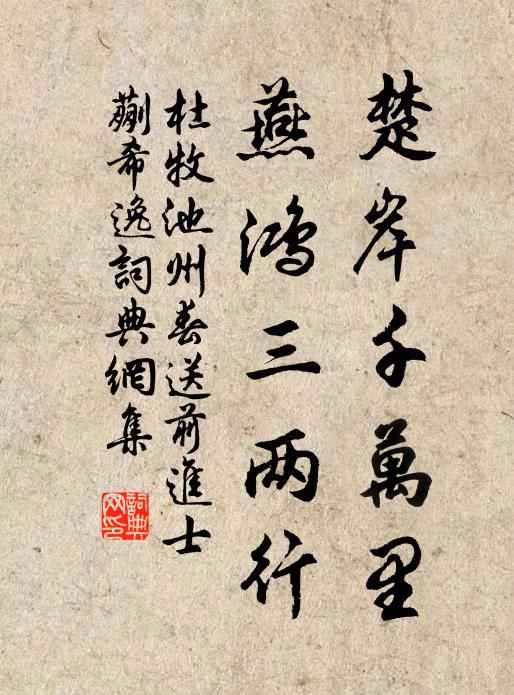 楚岸千萬里
燕鴻三两行
杜牧池州春送前進士
蒯希逸詞典網集
詞典
网印